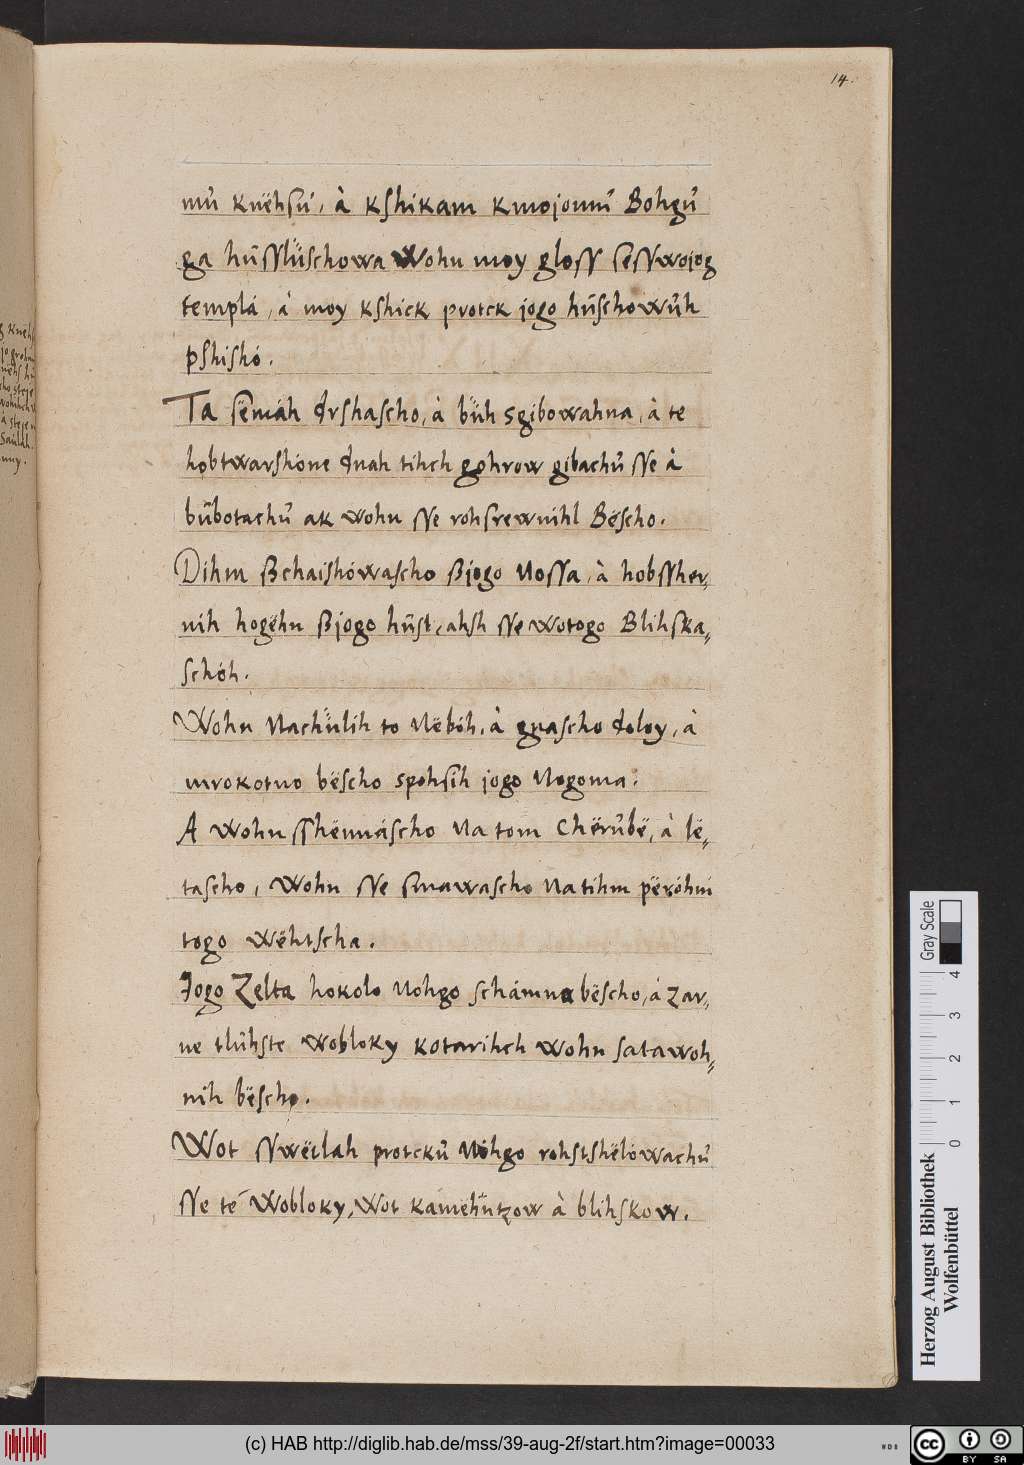 14.
mů knëhsú, à kshikam kmojomů Bohgů
ga hůsslüschowa Wohn moy gloss sessẃojog
templá, à moy kshick protck jogo hůschowůh
pshishó.
Ta sëmáh drshascho, à büh sgibowahna, à te
hobtwarshóne dnah tihch gohrow gibachů sse à
bůbotachů ak wohn sse rohsrewnihl Bëscho.
Dihm ßchaishówascho ßjogo Nossa, à hobssher„
nih hogëhn ßjogo hůst, ahsh sse wotogo Blihska„
schóh.
Wohn Nachülih to Nëbóh, à gnascho doloy, à
mrokotno bëscho spohsih jogo Nogoma.
A wohn sshënnáscho Na tom Chërůbë, à lë„
tascho, Wohn sse smawascho Na tihm përóhmi
togo wëhtscha.
Jogo Zelta hokolo Nohgo schámna bëscho, à zar„
ne tlůhste wobloky kotarihch wohn satawoh„
nih bëscho.
Wot sswëtlah protcků Nóhgo rohstshëlówachů
sse té Wobloky, Wot kámëhůtzow à blihskow.
Gray Scale
4
3
2
1
0
Herzog August Bibliothek
Wolfenbüttel
(c) HAB http://diglib.hab.de/mss/39-aug-2f/start.htm?image=00033
WDB
cc
BY SA